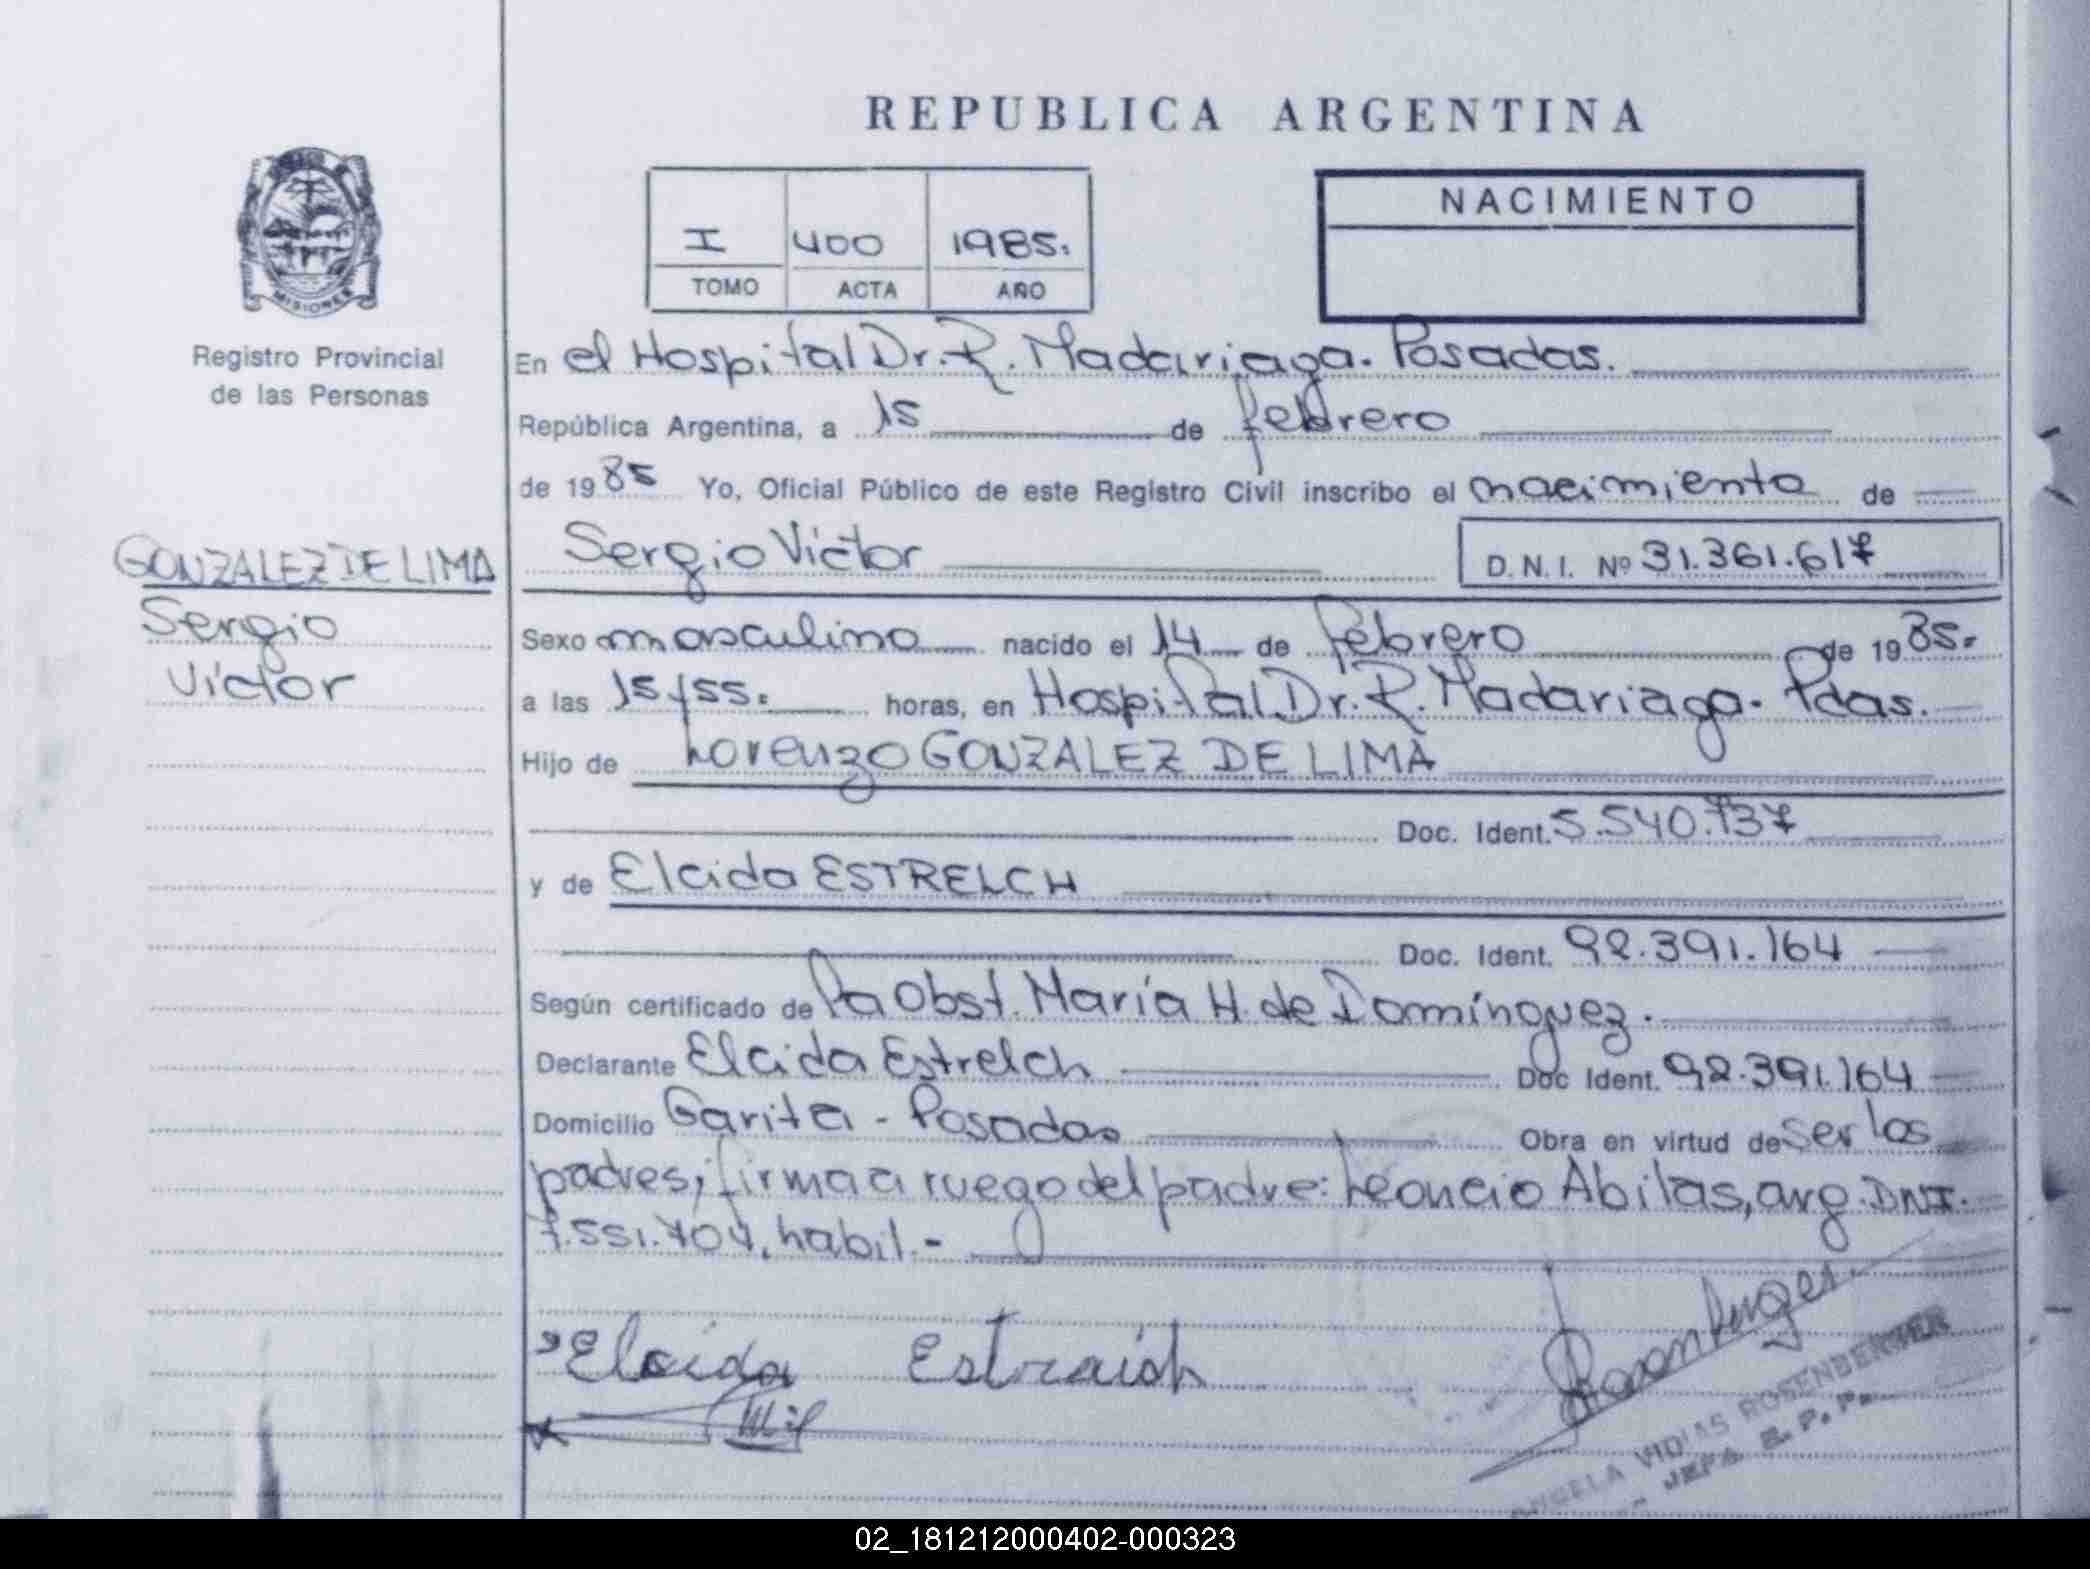 REPUBLICA ARGENTINA
MISIONES
Registro Provincial
de las Personas
I 400 1985.
TOMO ACTA AÑO
NACIMIENTO
En el Hospital Dr. R. Madariaga. Posadas.
República Argentina, a 15 de febrero
de 1985 Yo, Oficial Público de este Registro Civil inscribo el nacimiento de
GONZALEZ DE LIMA
Sergio
Victor
Sergio Victor D.N.I. Nº 31.361.617
Sexo masculino nacido el 14 de febrero de 1985.
a las 15,55. horas, en Hospital Dr. R. Madariaga. Pdas.
Hijo de Lorenzo GONZALEZ DE LIMA
Doc. Ident. 5.540.737
y de Elcida ESTRELCH
Doc. Ident. 92.391.164
Según certificado de Pa Obst. María H. de Domínguez.
Declarante Elcida Estrelch Doc Ident. 92.391.164
Domicilio Garita - Posadas Obra en virtud de ser los
padres; firma a ruego del padre: Leoncio Abilas, arg. DNI.
7.551.704, habil.-
Elcida Estraich
Rosenberger
ANGELA VIDIAS ROSENBERGER
JEFA R. P. P.
02_181212000402-000323